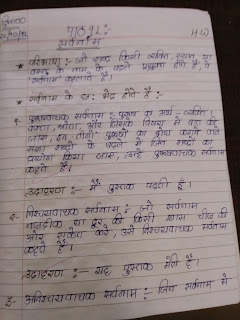 पाठ 9 :-
H.W
सर्वनाम
* परिभाषा :- जो शब्द किसी व्यक्ति, स्थान या
वस्तु के नाम के बदले प्रयुक्त होते है, वे
सर्वनाम कहलाते हैं।
* सर्वनाम के छः भेद होते हैं :-
१. पुरुषवाचक सर्वनाम :- पुरुष का अर्थ - व्यक्ति।
वक्ता, श्रोता, और जिसके विषय में बात की
जाए, इन तीनों पुरुषों का बोध कराने वाले
संज्ञा शब्दों के बदले में जिन शब्दों का
प्रयोग किया जाए, उन्हें पुरुषवाचक सर्वनाम
कहते हैं।
उदाहरण :- मैं पुस्तक पढ़ती हूँ।
२. निश्चयवाचक सर्वनाम :- जो सर्वनाम
नज़दीक या दूर की किसी खास चीज की
ओर संकेत करे, उसे निश्चयवाचक सर्वनाम
कहते हैं।
उदाहरण :- यह पुस्तक मेरी है।
३. अनिश्चयवाचक सर्वनाम :- जिन सर्वनाम से